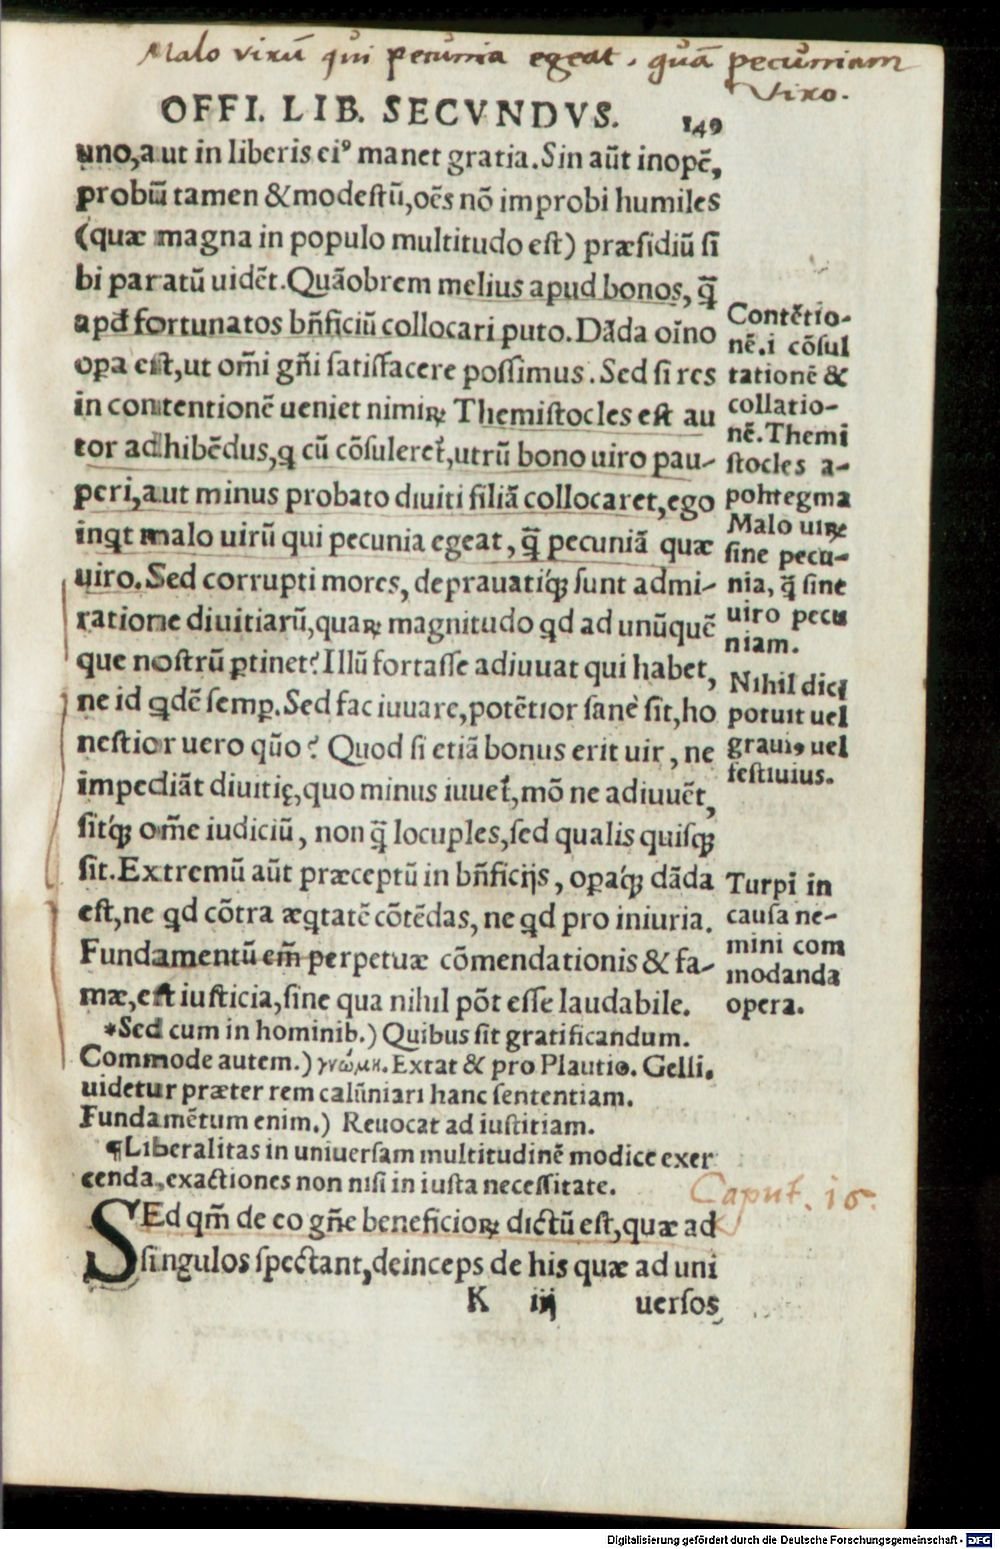 Malo virū qui pecunia egeat, quā pecuniam
viro.
OFFI. LIB. SECVNDVS. 149
uno, aut in liberis eiꝰ manet gratia. Sin aūt inopē,
probū tamen & modestū, oēs nō improbi humiles
(quæ magna in populo multitudo est) præsidiū si
bi paratū uidēt. Quāobrem melius apud bonos, q̄
apđ fortunatos bn̄ficiū collocari puto. Dāda oīno
oꝑa est, ut om̄i gn̄i satisfacere possimus. Sed si res
in contentionē ueniet nimiꝝ Themistocles est au
tor adhibēdus, ꝗ cū cōsuleret᷑, utrū bono uiro pau-
peri, aut minus probato diuiti filiā collocaret, ego
inꝗt malo uirū qui pecunia egeat, q̄ pecuniā quæ
uiro. Sed corrupti mores, deprauatiq́ꝫ sunt admi-
ratione diuitiarū, quaꝝ magnitudo ꝗd ad unūquē
que nostrū ꝑtinet? Illū fortasse adiuuat qui habet,
ne id ꝗdē semꝑ. Sed fac iuuare, potētior sanè sit, ho
nestior uero quō? Quod si etiā bonus erit uir, ne
impediāt diuitię, quo minus iuuet᷑, mō ne adiuuēt,
sitq́ꝫ om̄e iudiciū, non q̄ locuples, sed qualis quisqꝫ
sit. Extremū aūt præceptū in bn̄ficijs, oꝑaq́ꝫ dāda
est, ne ꝗd cōtra æꝗtatē cōtēdas, ne ꝗd pro iniuria.
Fundamentū em̄ perpetuæ cōmendationis & fa-
mæ, est iusticia, sine qua nihil pōt esse laudabile.
*Sed cum in hominib.) Quibus sit gratificandum.
Commode autem.) γνώμη. Extat & pro Plautio. Gelli.
uidetur præter rem calūniari hanc sententiam.
Fundamētum enim.) Reuocat ad iustitiam.
¶Liberalitas in uniuersam multitudinē modice exer
cenda, exactiones non nisi in iusta necessitate.
SEd qm̄ de eo gn̄e beneficioꝝ dictū est, quæ ad
singulos spectant, deinceps de his quæ ad uni
K iij uersos
Contētio-
nē. i cōsul
tationē &
collatio-
nē. Themi
stocles a-
pohtegma
Malo uiꝝ
sine pecu-
nia, q̄ sine
uiro pecu
niam.
Nihil dici
potuit uel
grauiꝰ uel
festiuius.
Turpi in
causa ne-
mini com
modanda
opera.
Caput. 16.
Digitalisierung gefördert durch die Deutsche Forschungsgemeinschaft - DFG